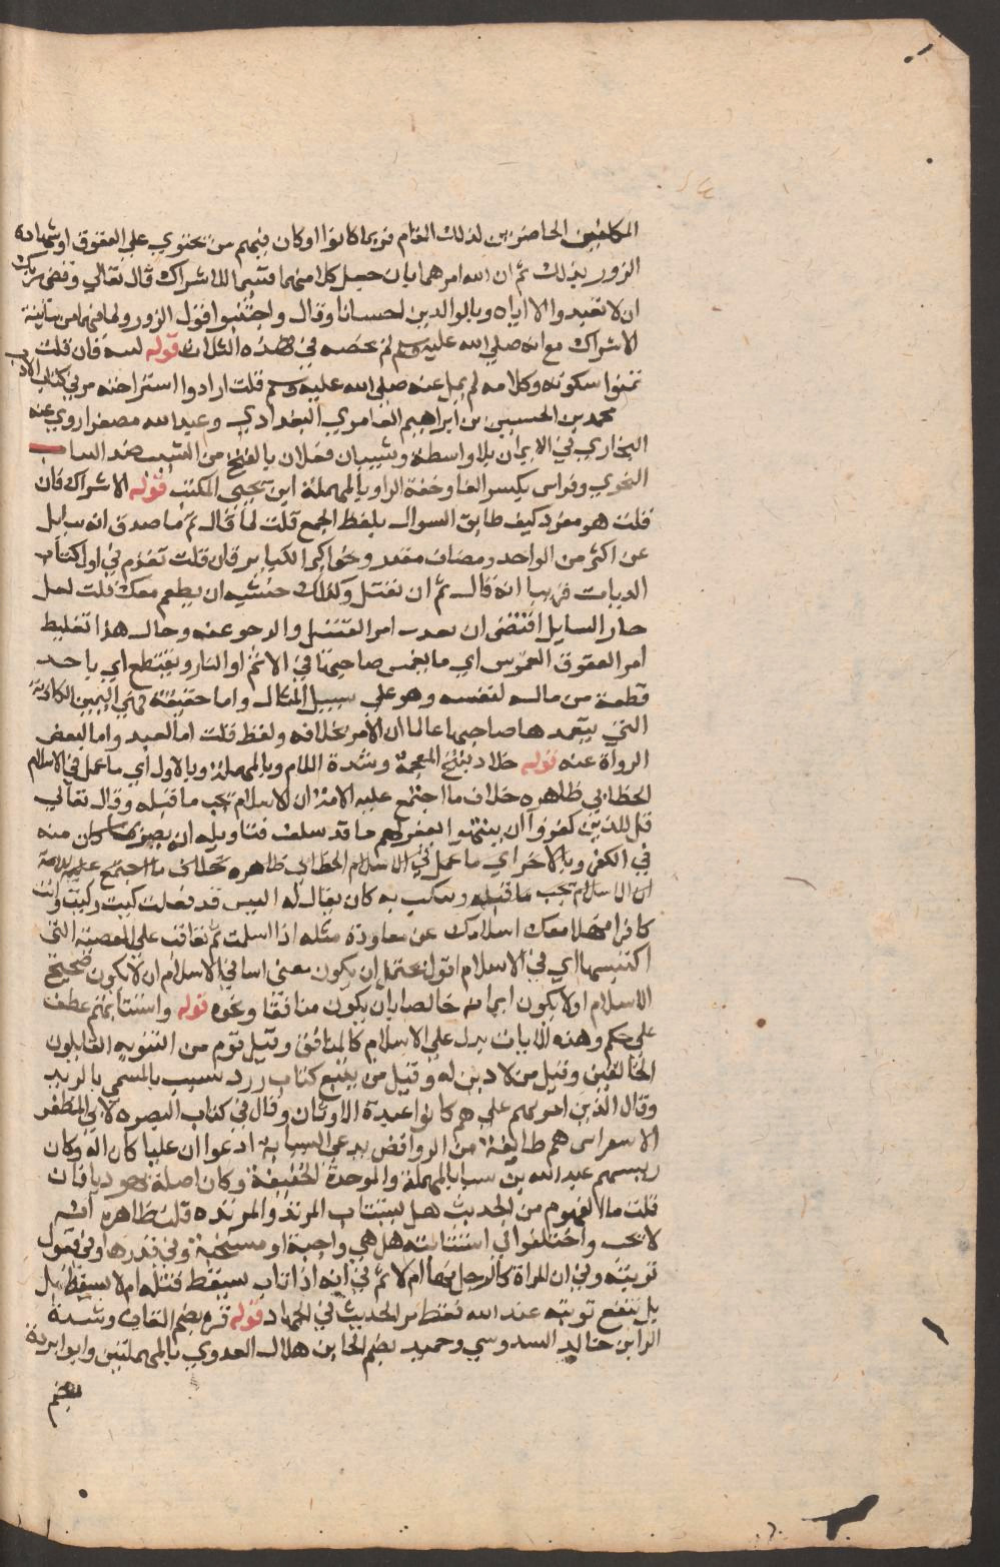 المكلفين الحاضرين لذلك المقام فربما كانوا او كان فيهم من يحتوي على العقوق او شهادة
الزور بذلك ثم ان الله امرهما بان جعل كلا منهما قسيما للاشراك قال تعالى وقضى ربك
ان لا تعبدوا الا اياه وبالوالدين احسانا وقال واجتنبوا قول الزور ولما فهما من شاينة
الاشراك مع انه صلى الله عليه وسلم لم يخصه في هذه الثلاث قوله ليته فان قلت
تمنوا سكوته وكلامه لم يمل عنه صلى الله عليه وسلم قلت ارادوا استراحته مر في كتاب الادب
محمد بن الحسين بن ابراهيم العامري البغدادي وعبيد الله مصغرا روى عنه
البخاري في الايمان بلا واسطة وشيبان فعلان بالفتح من الشيب ضد الشباب
النحوي وفراس بكسر الفا وخفة الرا وبالمهملة ابن يحيى المكتب قوله الاشراك فان
قلت هو مفرد كيف طابق السوال بلفظ الجمع قلت لما قال ثم ما صدق انه سايل
عن اكثر من الواحد ومضاف مقدر وهو اكبر الكباير فان قلت تقدم في اول كتاب
الديات قريبا انه قال ثم ان تقتل ولدك خشية ان يطعم معك قلت لعل
حال السايل اقتضى ان امر القتل والزجر عنه وحال هذا تغليظ
امر العقوق الغموس اي ما يغمس صاحبها في الاثم او النار ويقتطع اي ياخذ
قطعة من ماله لنفسه وهو على سبيل المثال واما حقيقته فهي اليمين الكاذبة
التي يتعمدها صاحبها عالما ان الامر بخلافه ولفظ قلت اما لعبد واما لبعض
الرواة عنه قوله خلاد بفتح المعجمة وشدة اللام وبالمهملة وبالاول اي ما عمل في الاسلام
الخطابي ظاهره خلاف ما اجتمع عليه الامة ان الاسلام يجب ما قبله وقال تعالى
قل للذين كفروا ان ينتهوا يغفر لهم ما قد سلف فتاويله ان كان منه
في الكفر وبالاخر اي ما عمل في الاسلام الخطابي ظاهره خلاف ما اجتمع عليه الامة
ان الاسلام يجب ما قبله كان يقال له اليس قد فعلت كيت وكيت وانت
كافر فهلا منعك اسلامك عن معاودة مثله اذا اسلمت ثم يعاقب على المعصية التي
اكتسبها اي في الاسلام اقول يحتمل ان يكون معنى اسا في الاسلام ان لا يكون صحيح
الاسلام او لا يكون ايمانه خالصا بان يكون منافقا ونحوه قوله واستتابتهم عطف
على حكم وهذه الايات يدل على الاسلام كالمنافق وقيل قوم من الثنوية القايلون
الخالقين وقيل من لا دين له وقيل من يتبع كتاب زرد المسمى بالزند
وقال الذين احرقهم علي هم كانوا عبدة الاوثان وقال في كتاب التبصره لابي المظفر
الاسفرايني هم طايفة من الروافض يدعى السبابية ادعوا ان عليا كان اله وكان
رييسهم عبد الله بن سبا بالمهملة والموحدة الخفيفة وكان اصله يهوديا فان
قلت ما المفهوم من الحديث هل يستتاب المرتد والمرتده قلت ظاهره انه
لا يجب واختلفوا في استتابته هل هي واجبة او مستحبة وفي قدرها وفي قبول
توبته وفي ان المراة كالرجل فيها ام لا ثم في انه اذا تاب سيقط قتله ام لا يسقط بل
بل ينفع توبته عند الله فقط مر الحديث في الجهاد قوله قره بضم القاف وشدة
الرا بن خالد السدوسي وحميد بضم الحا بن هلال العدوي بالمهملتين وابو بردة
بضم